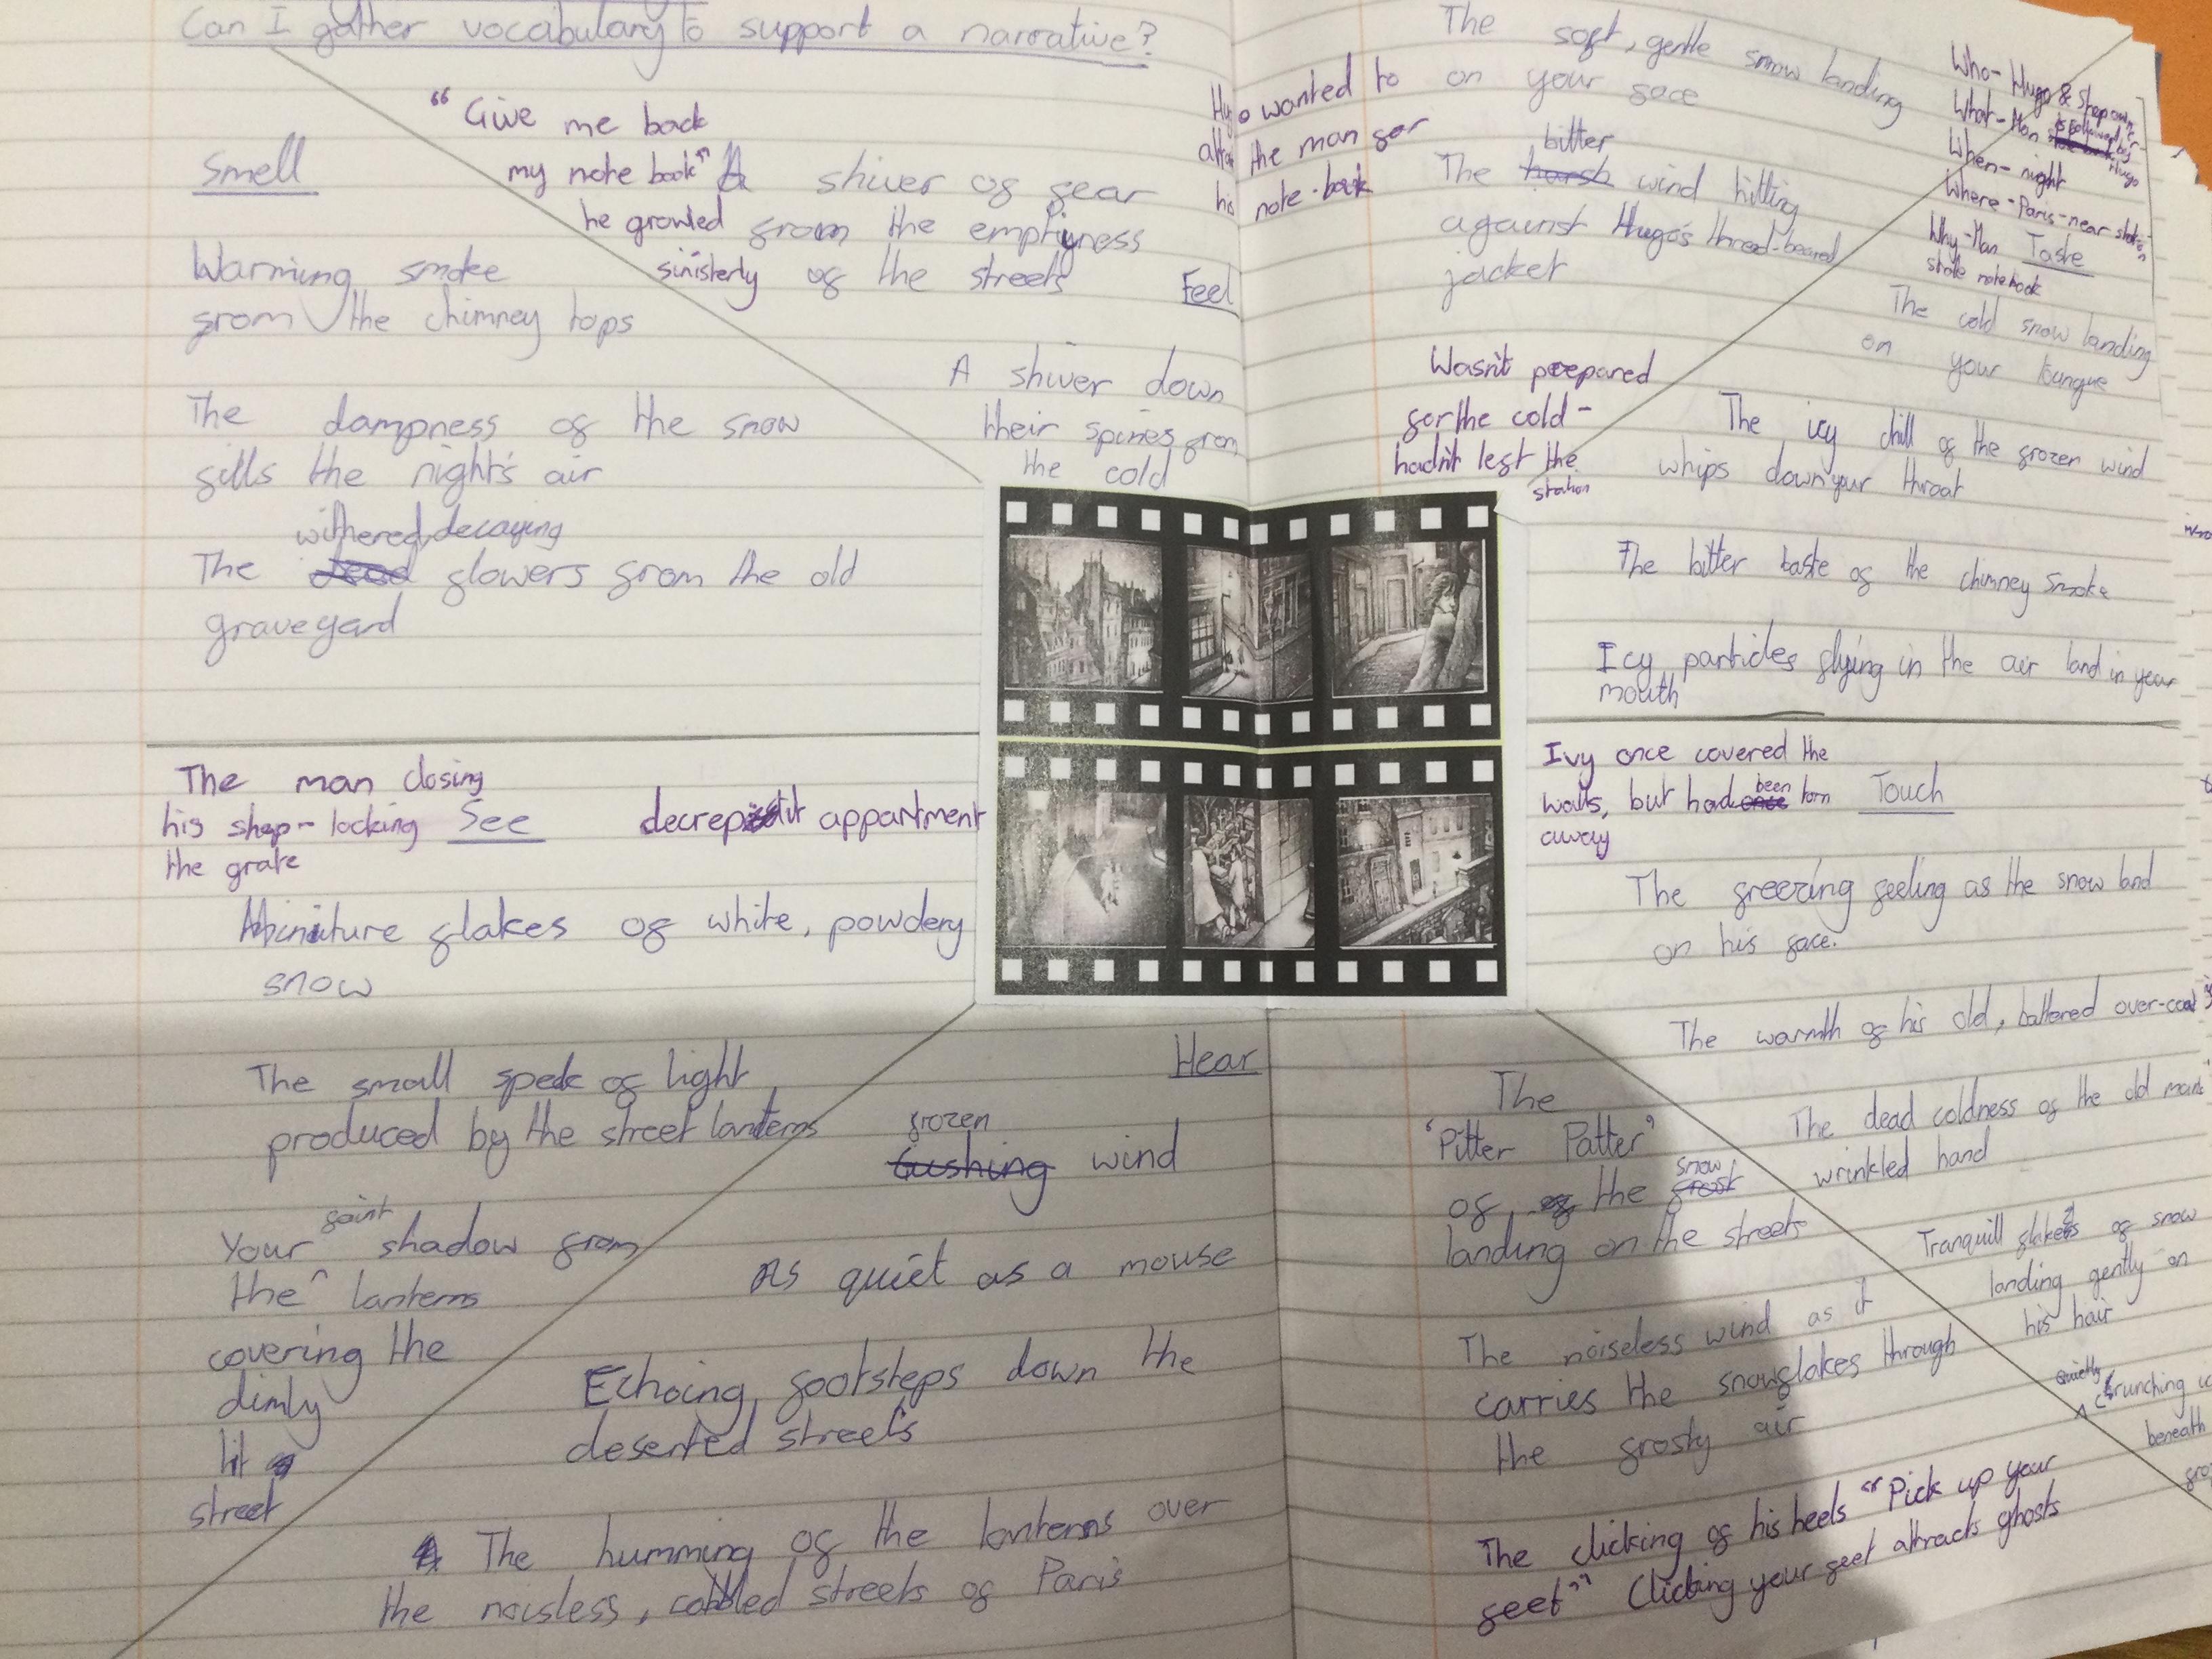 Can I gather vocabulary to support a narrative?
Smell
Warming smoke
from the chimney tops
The dampness of the snow
fills the night's air
withered, decaying
The dead flowers from the old
graveyard
"Give me back
my note book"
he growled
sinisterly
A shiver of fear
from the emptyness
of the streets
Feel
A shiver down
their spines from
the cold
Hugo wanted to
the man for
his note-book
The soft, gentle snow landing
on your face
bitter
The harsh wind hitting
against Hugo's thread-beared
jacket
Wasn't prepared
for the cold-
hadn't left the
station
Who- Hugo & Shop owner
What- Man is followed by
Hugo
When- night
Where- Paris- near station
Why- Man
stole notebook
Taste
The cold snow landing
on your toungue
The icy chill of the frozen wind
whips down your throat
The bitter taste of the chimney smoke
Icy particles flying in the air land in your
mouth
The man closing
his shop- locking
the grate
See
decrepit appartment
Miniature flakes of white, powdery
snow
The small speck of light
produced by the street lanterns
faint
Your ^ shadow from
the lanterns
covering the
dimly
lit
street
Hear
frozen
Gushing wind
As quiet as a mouse
Echoing footsteps down the
deserted streets
The humming of the lanterns over
the noisless, cobbled streets of Paris
The
'Pitter Patter'
of of the frost
snow
landing on the streets
The noiseless wind as it
carries the snowflakes through
the frosty air
The clicking of his heels "Pick up your
feet" Clicking your feet attracts ghosts
Ivy once covered the
walls, but had once been torn
away
Touch
The freezing feeling as the snow land
on his face.
The warmth of his old, battered over-coat
The dead coldness of the old man's
wrinkled hand
Tranquill flakes of snow
landing gently on
his hair
Quietly
^ crunching
beneath